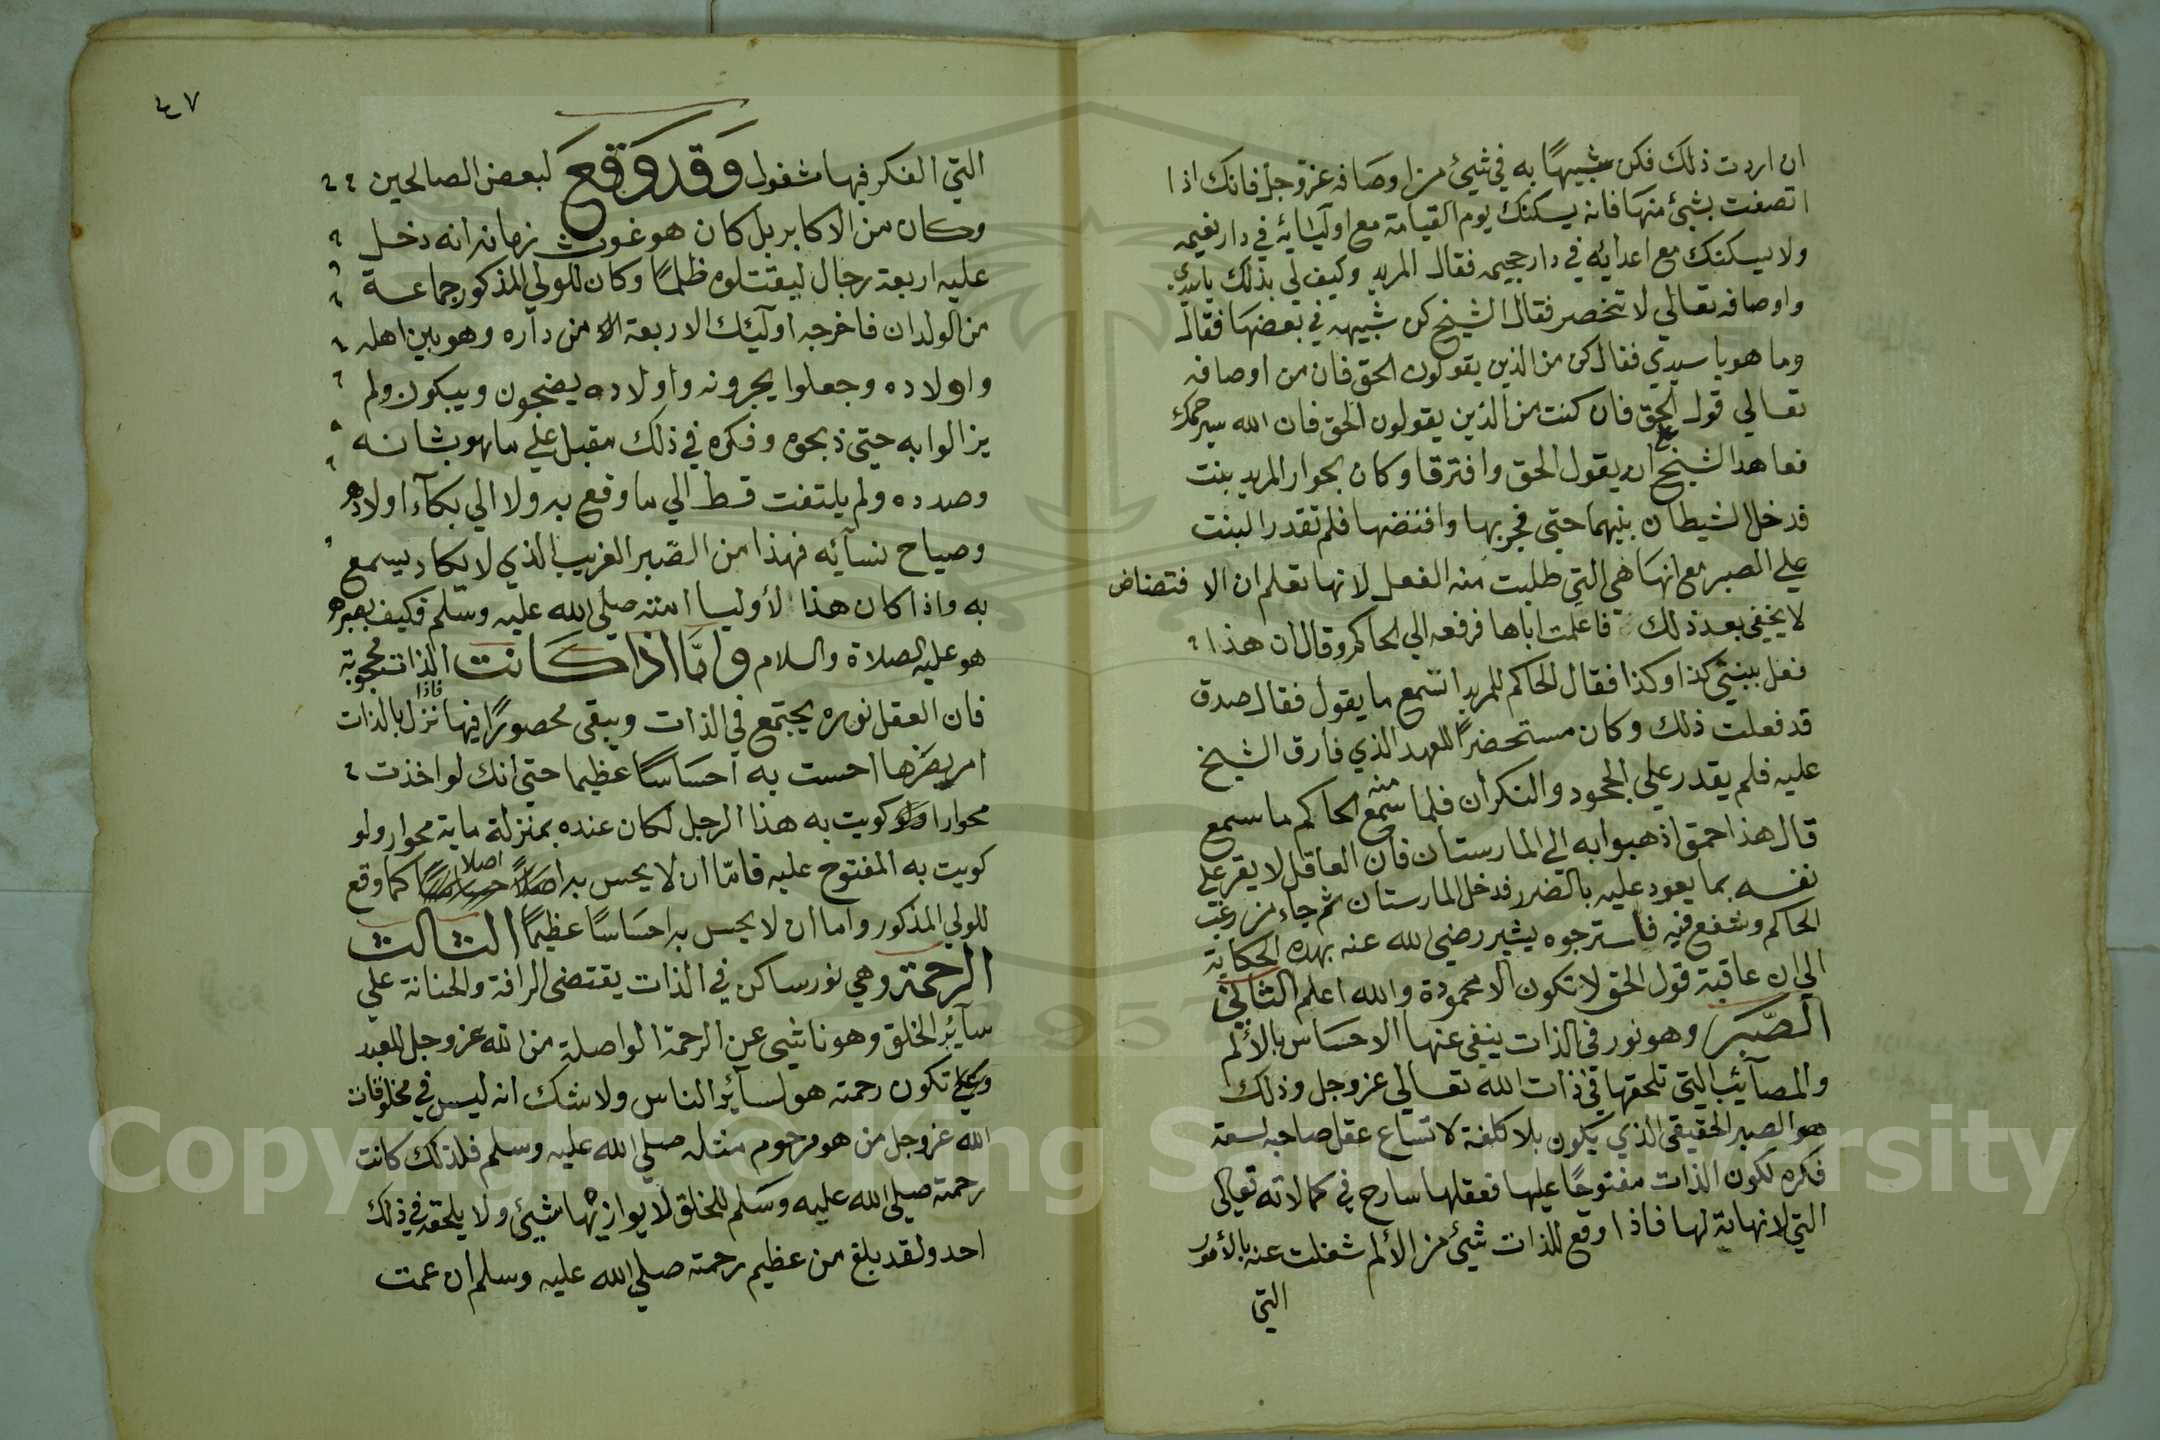 ان اردت ذلك فكن شبيهًا به في شيئ من اوصافه عز وجل فانك اذا
اتصفت بشيئ منها فانه يسكنك يوم القيامة مع اوليائه في دار نعيمه
ولا يسكنك مع اعدائه في دار جحيمه فقال المريد وكيف لي بذلك ياسيدي
واوصافه تعالي لا تنحصر فقال الشيخ كن شبيهه في بعضها فقال
وما هو يا سيدي فقال كن من الذين يقولون الحق فان من اوصافه
تعالي قول الحق فان كنت من الذين يقولون الحق فان الله سيرحمك
فعاهد الشيخ علي ان يقول الحق وافترقا وكان بجوار المريد بنت
فدخل الشيطان بينهما حتي فجر بها وافتضها فلم تقدر البنت
علي الصبر مع انها هي التي طلبت منه الفعل لانها تعلم ان الافتضاض
لا يخفي بعد ذلك فاعلمت اباها فرفعه الي الحاكم وقال ان هذا
فعل ببنتي كذا وكذا فقال الحاكم للمريد اتسمع ما يقول فقال صدق
قد فعلت ذلك وكان مستحضرًا للعهد الذي فارق الشيخ
عليه فلم يقدر علي الجحود والنكران فلما سمع منه الحاكم ما سمع
قال هذا احمق اذهبوا به الي المارستان فان العاقل لا يقر علي
نفسه بما يعود عليه بالضرر فدخل المارستان ثم جاء من رغب
الحاكم وشفع فيه فاسترجوه يشير رضي الله عنه بهذه الحكاية
الي ان عاقبة قول الحق لا تكون الا محمودة والله اعلم الثاني
الصّبر وهو نور في الذات ينفي عنها الاحساس بالألم
والمصآئب التي تلحقها في ذات الله تعالي عز وجل وذلك
هو الصبر الحقيقي الذي يكون بلا كلفة لاتساع عقل صاحبه لسعة
فكره لكون الذات مفتوحًا عليها فعقلها سارح في كمالاته تعالي
التي لا نهاية لها فاذا وقع للذات شيئ من الألم شغلت عنه بالأمور
التي
٤٧
التي الفكر فيها مشغول وقد وقع لبعض الصالحين
وكان من الاكابر بل كان هو غوث زمانه انه دخل
عليه اربعة رجال ليقتلوه ظلمًا وكان للولي المذكور جماعة
من الولدان فاخرجه اولئك الاربعة من داره وهو بين اهله
واولاده وجعلوا يجرونه واولاده يضجون ويبكون ولم
يزالوا به حتي ذبحوه وفكره في ذلك مقبل علي ما هو بشانه
وصدده ولم يلتفت قط الي ما وقع به ولا الي بكآء اولاده
وصياح نسآئه فهذا من الصّبر الغريب الذي لا يكاد يسمع
به واذا كان هذا لأوليا امته صلي الله عليه وسلم فكيف بصبره
هو عليه الصلاة والسلام وامّا اذا كانت الذات محجوبة
فان العقل نوره يجتمع في الذات ويبقي محصورًا فيها فاذا نزل بالذات
امر يضرها احست به احساسًا عظيما حتي انك لو اخذت
محوارا وكويت به هذا الرجل لكان عنده بمنزلة ماية محوار ولو
كويت به المفتوح عليه فامّا ان لا يحس به اصلا كما وقع
للولي المذكور واما ان لا يحس به احساسًا عظيمًا الثالث
الرحمة وهي نور ساكن في الذات يقتضي الرافة والحنانة علي
سآئر الخلق وهو ناشي عن الرحمة الواصلة من الله عز وجل للعبد
وعلي تكون رحمته هو لسآئر الناس ولا شك انه ليس في مخلوقات
الله عز وجل من هو مرحوم مثله صلي الله عليه وسلم فلذلك كانت
رحمته صلي الله عليه وسلم للخلق لا يوازيها شيئ ولا يلحقه في ذلك
احد ولقد بلغ من عظيم رحمته صلي الله عليه وسلم ان عمت
Copyright © King Saud University
1957